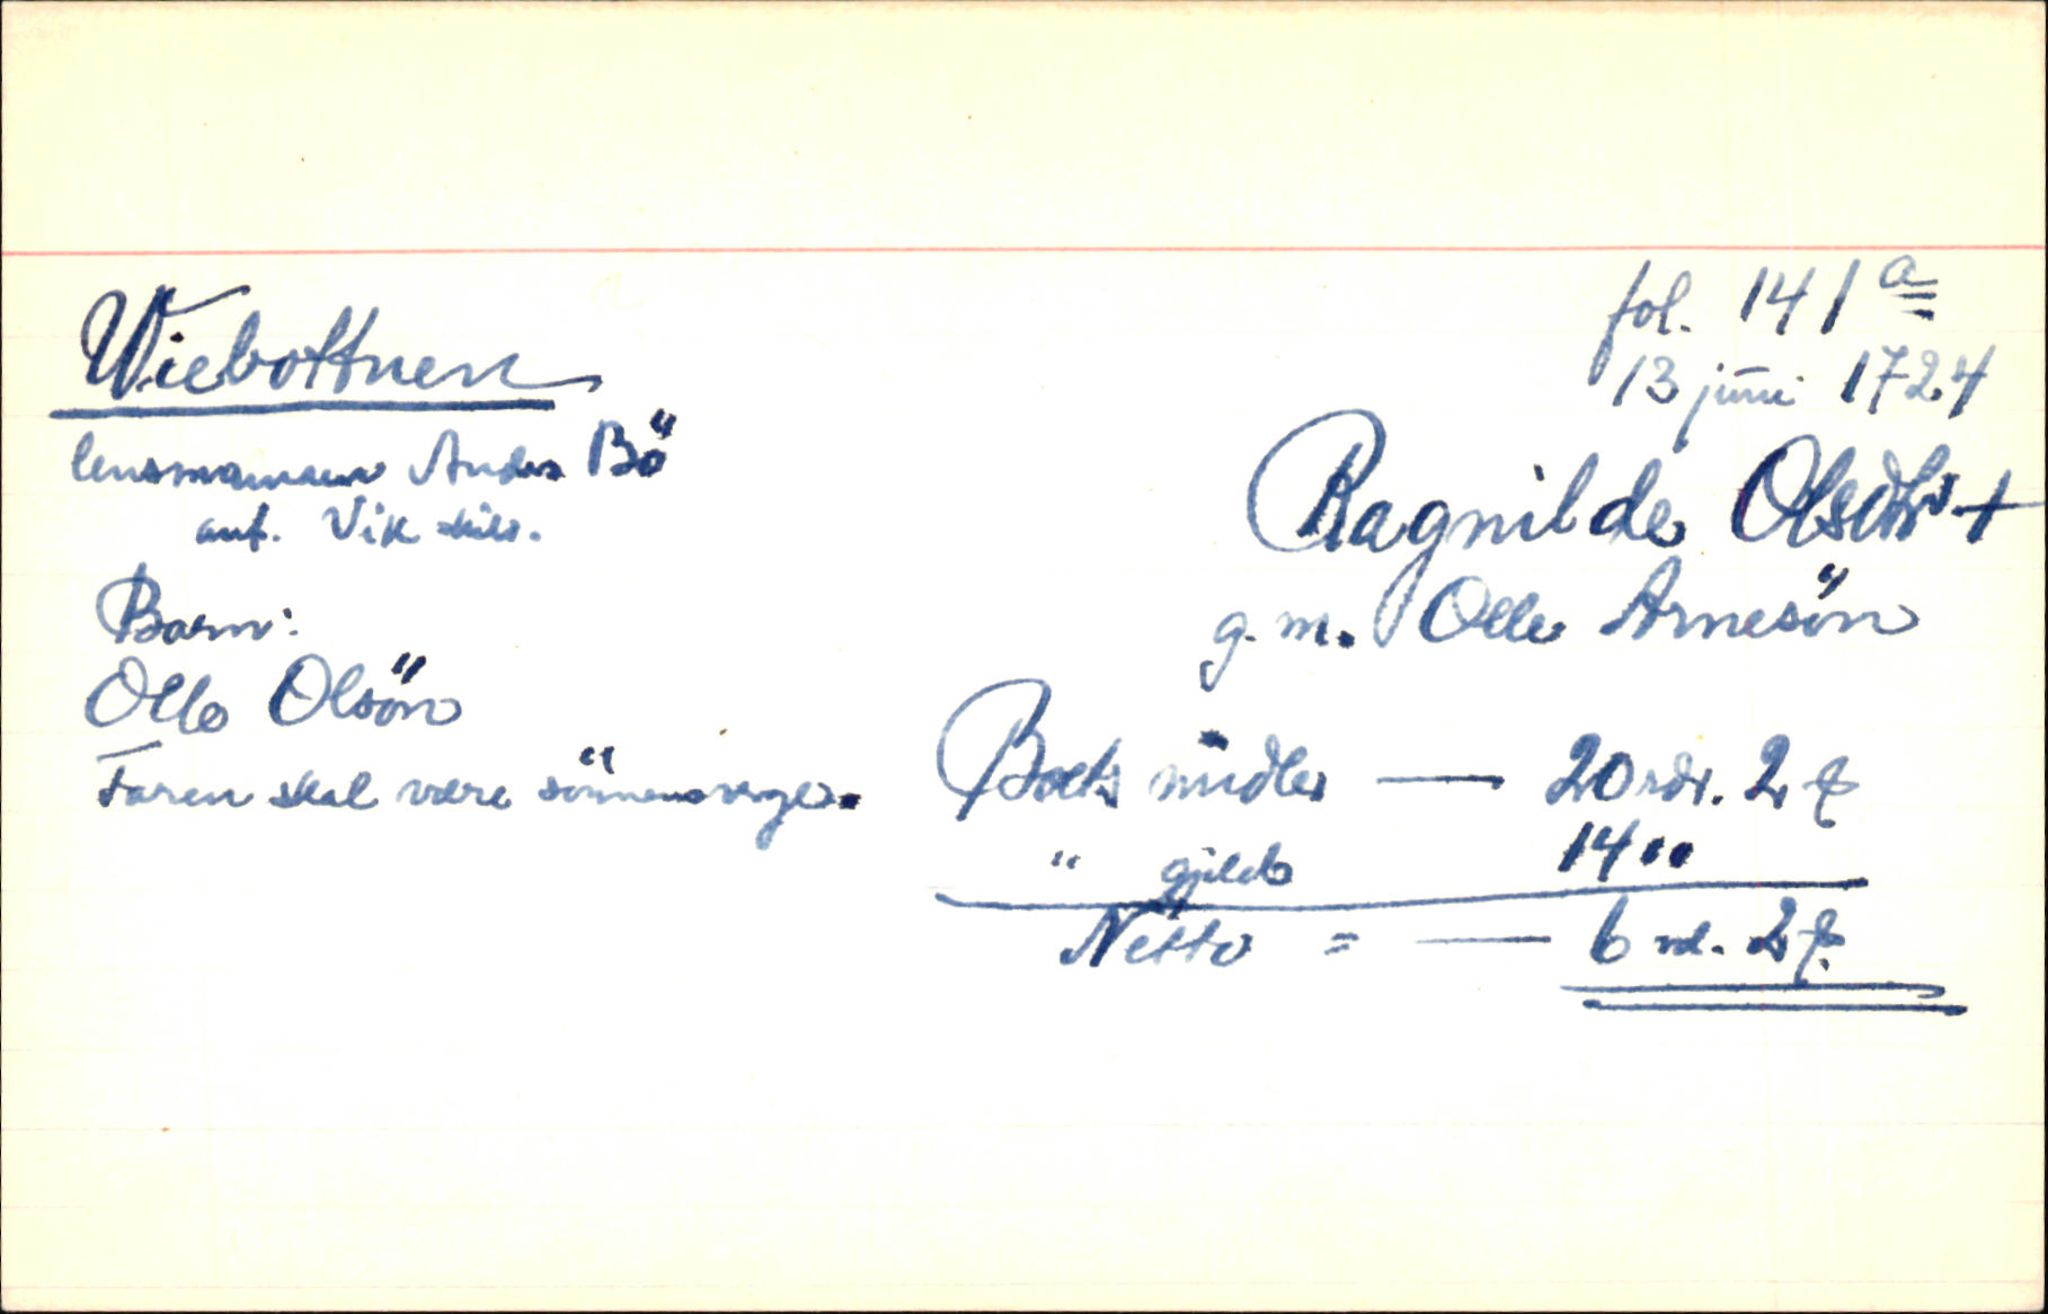 fol. 141 a
13 juni 1724
Wiebottnen
lensmannen Anders Bö
ant. Vik skibr.
Ragnilde Olsdtr +
g. m. Olle Arnesön
Barn:
Olle Olsön
Faren skal være sönnens verge.
Boets midler — 20 rdr. 2 ₰
" gjeld 14 "
Netto = — 6 rd. 2 ₰